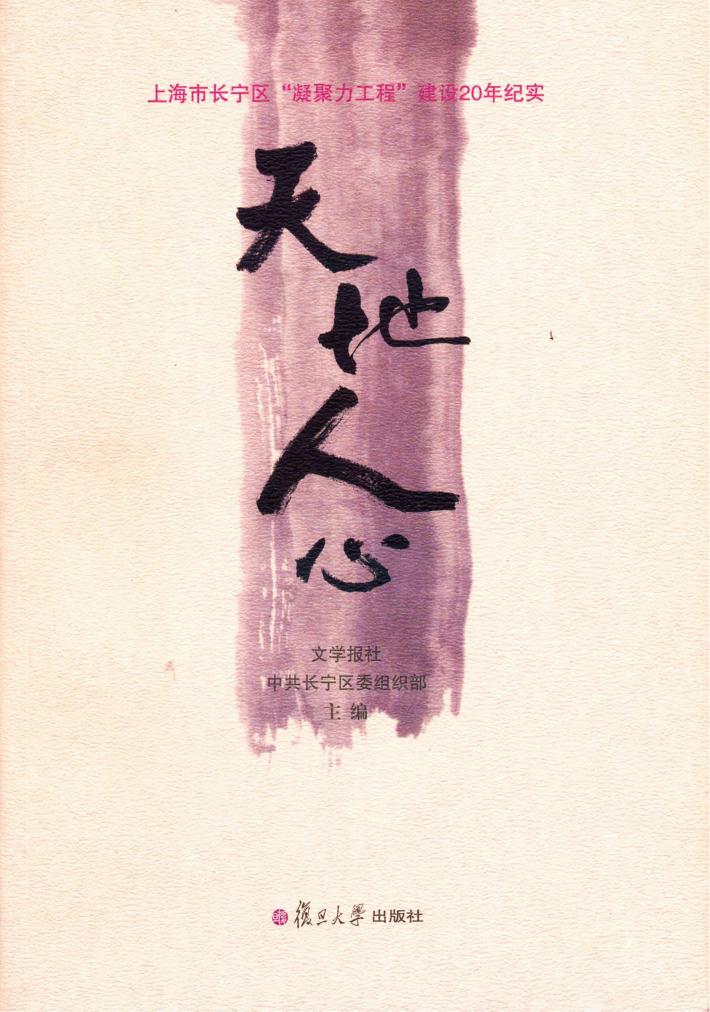 上海市长宁区“凝聚力工程”建设20年纪实
天
地
人
心
文学报社
中共长宁区委组织部
主编
復旦大學出版社